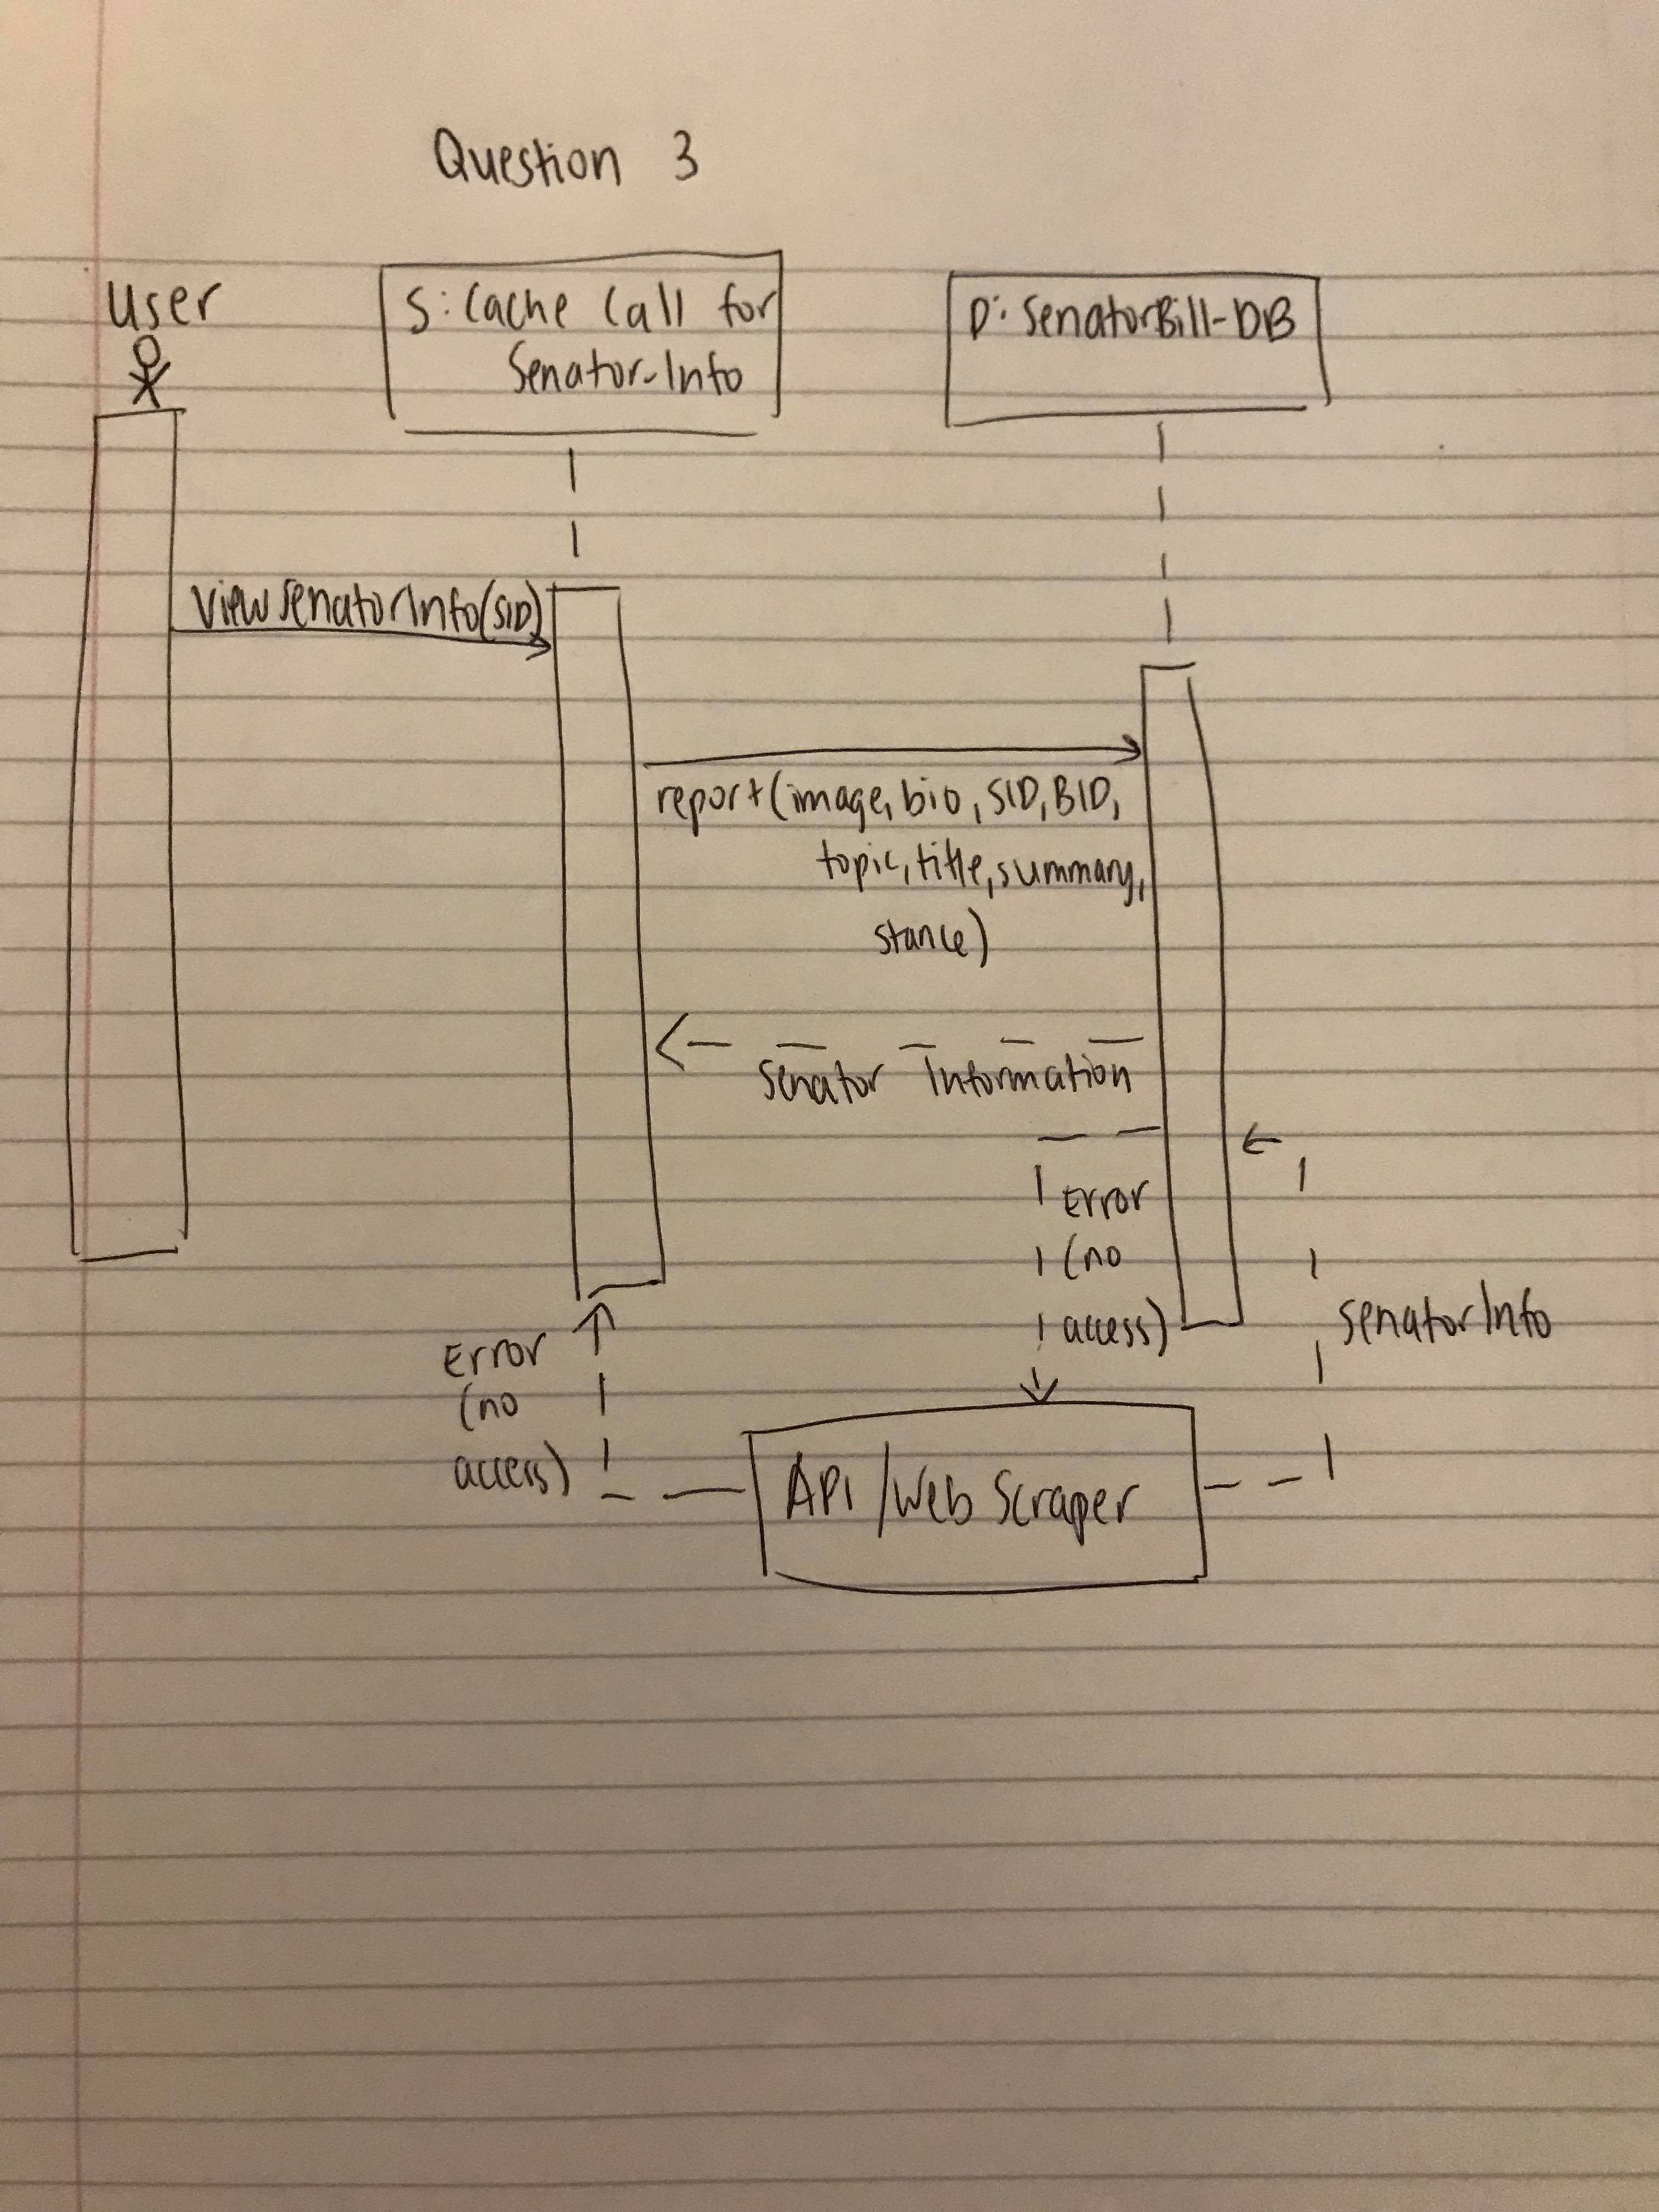 Question 3
User
S: Cache Call for
Senator-Info
D: SenatorBill-DB
ViewSenatorInfo(SID)
report(image, bio, SID, BID,
topic, title, summary,
stance)
Senator Information
Error
(no
access)
SenatorInfo
Error
(no
access)
API/Web Scraper